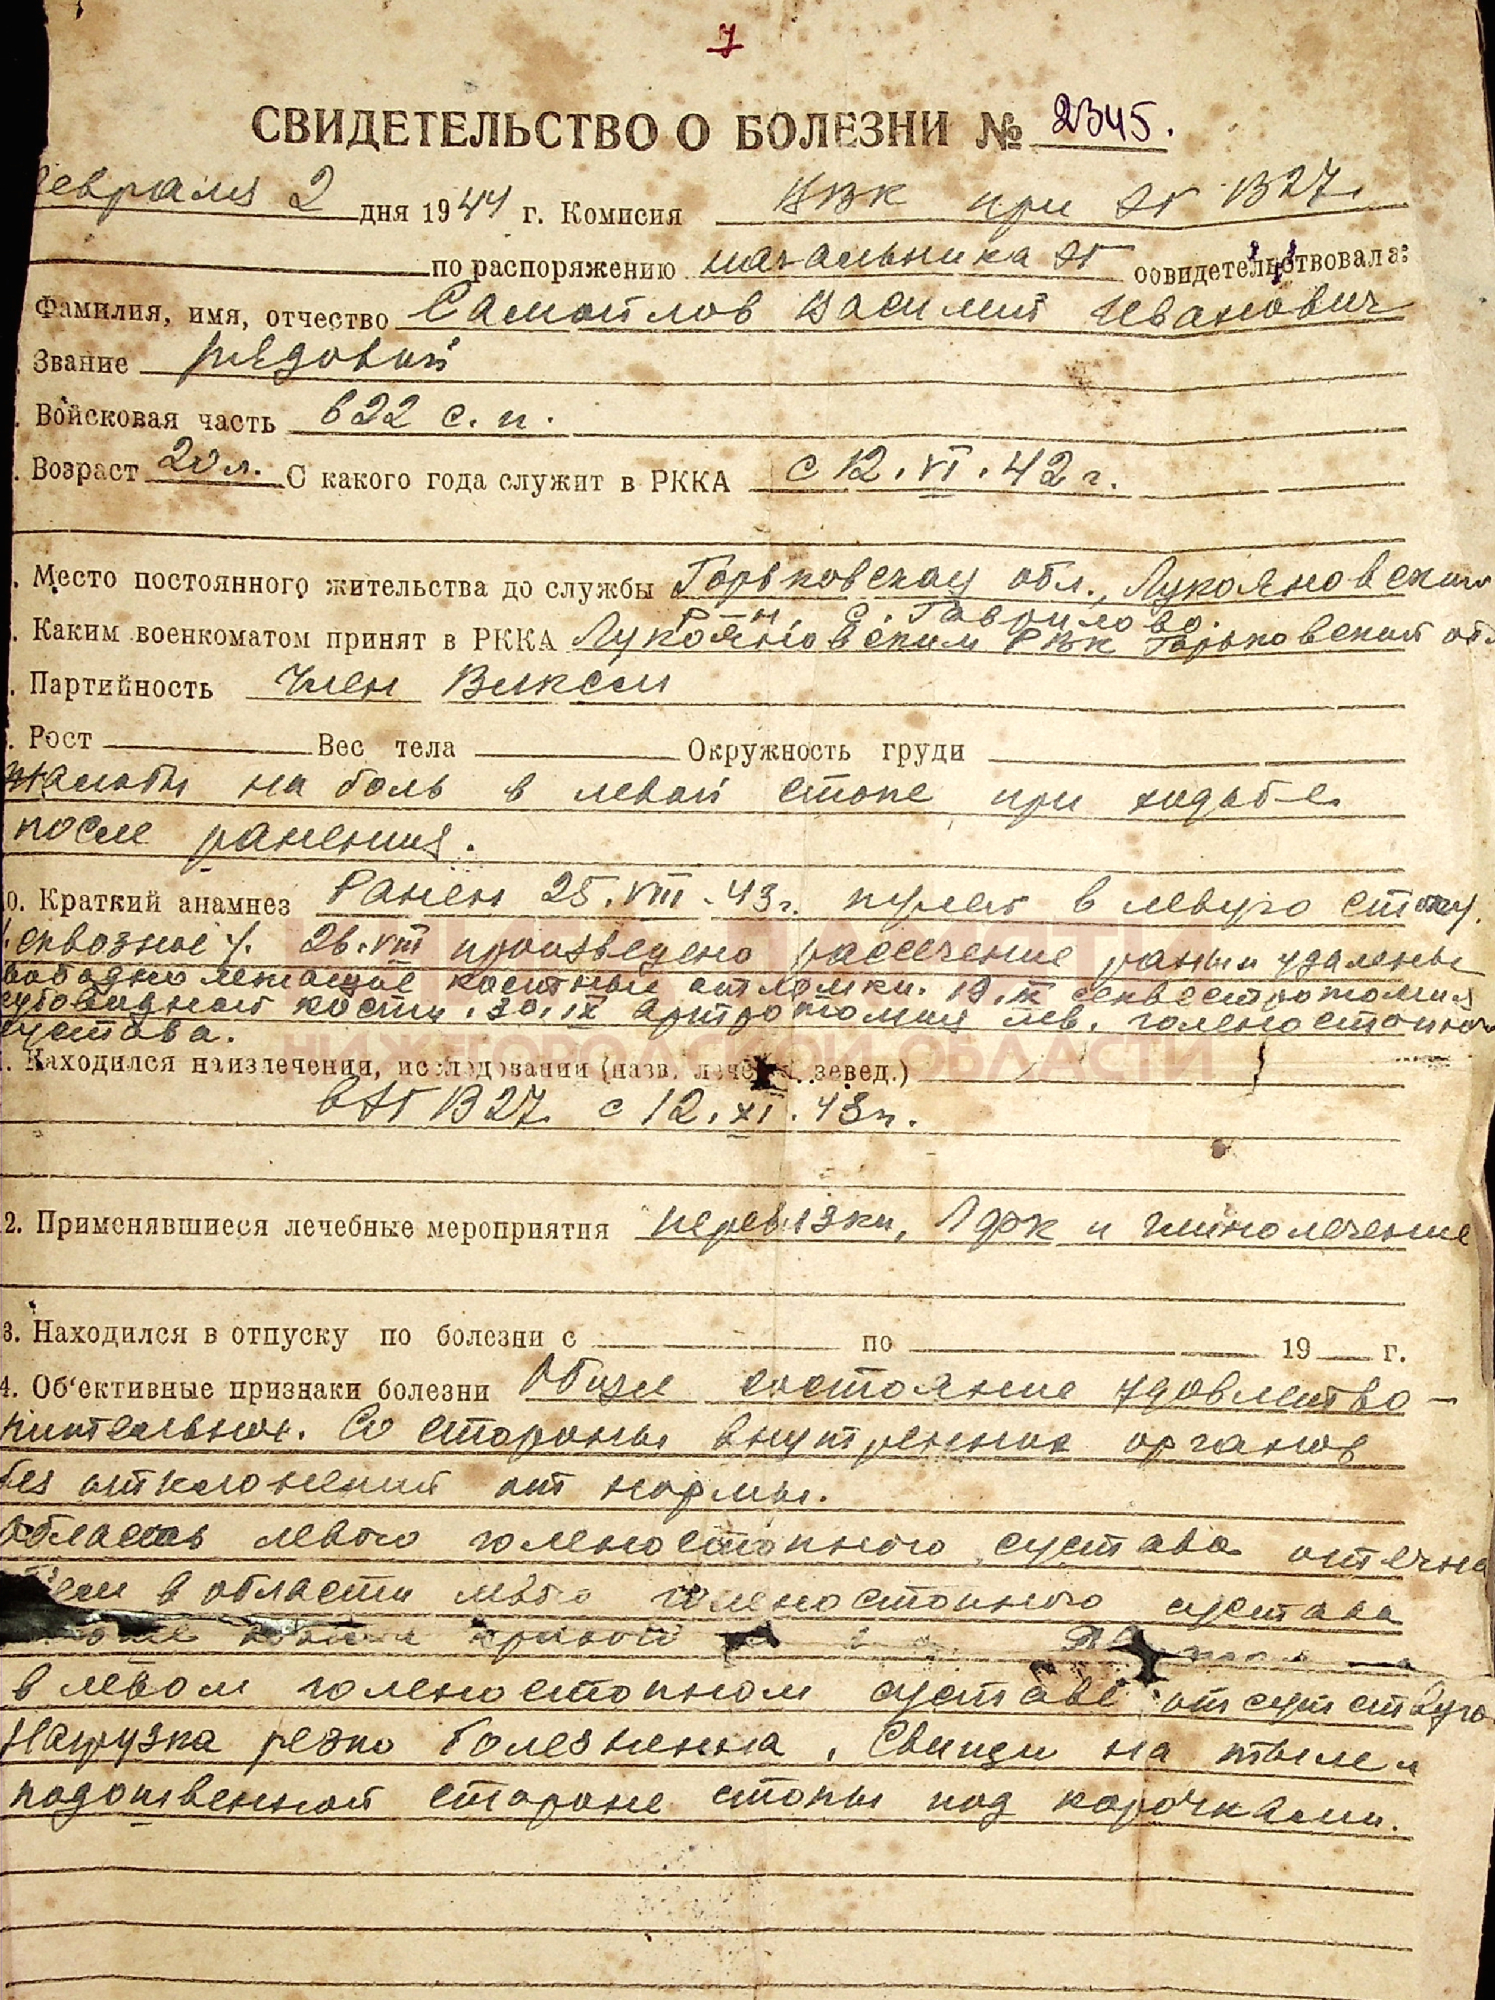 7
СВИДЕТЕЛЬСТВО О БОЛЕЗНИ № 2345.
февраля 2 дня 1944 г. Комисия ВВК при ЭГ 1327.
по распоряжению начальника ЭГ освидетельствовала:
Фамилия, имя, отчество Самойлов Василий Иванович
Звание рядовой
Войсковая часть 622 с. п.
Возраст 20 л. С какого года служит в РККА с 12.VI.42 г.
Место постоянного жительства до службы Горьковская обл., Лукояновский
р-н, с. Гаврилово.
Каким военкоматом принят в РККА Лукояновским РВК Горьковской обл
Партийность Член ВЛКСМ
Рост Вес тела Окружность груди
Жалобы на боль в левой стопе при ходьбе
после ранения.
0. Краткий анамнез Ранен 25.VIII.43 г. пулей в левую стопу.
/сквозное/. 26.VIII произведено рассечение раны и удалены
свободно лежащие костные отломки. 19.IX секвестротомия
кубовидной кости. 30.IX артротомия лев. голеностопного
сустава.
Находился на излечении, исследовании (назв. лечебн. завед.)
в ЭГ 1327 с 12.XI.43 г.
КНИГА ПАМЯТИ
НИЖЕГОРОДСКОЙ ОБЛАСТИ
2. Применявшиеся лечебные мероприятия перевязки, ЛФК и гинолечение
3. Находился в отпуску по болезни с по 19 г.
4. Об'ективные признаки болезни Общее состояние удовлетво-
рительное. Со стороны внутренних органов
без отклонений от нормы.
Область левого голеностопного сустава отечна
в области левого голеностопного сустава
в левом голеностопном суставе отсутствую
Нагрузка резко болезненна. Свищи на тыле и
подошвенной стороне стопы под корочками.